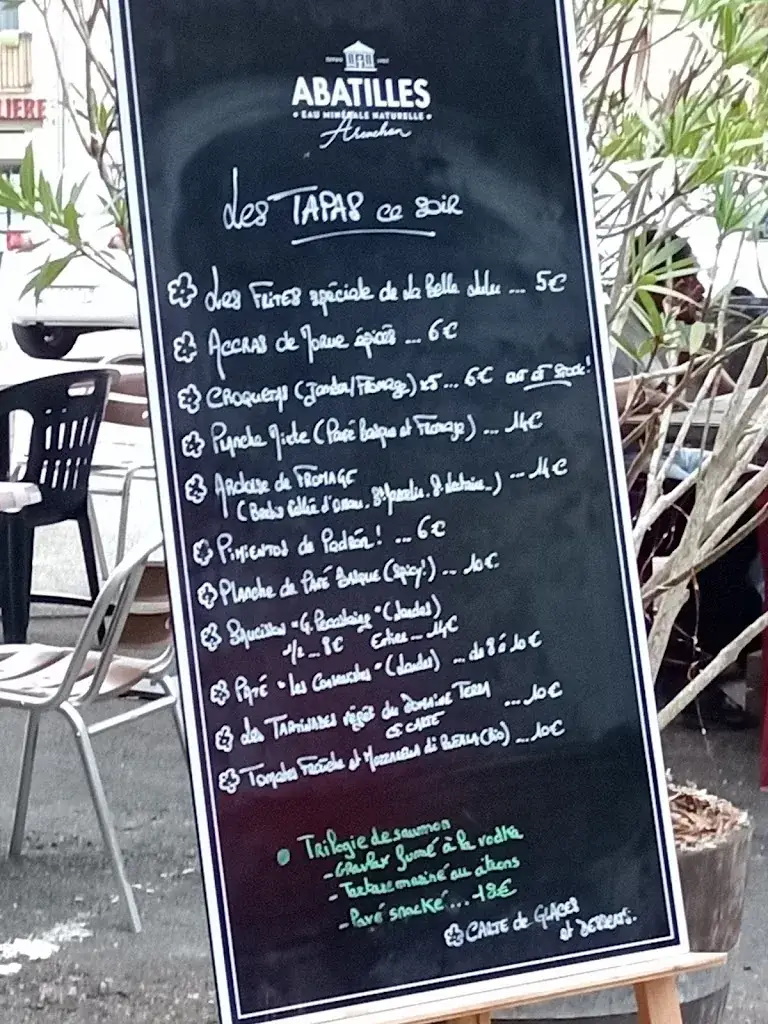 LIERE
DEPUIS
ABATILLES
• EAU MINÉRALE NATURELLE •
Arcachon
Les TAPAS ce soir
Les FRITES spéciale de la Belle ... 5€
ACCRAS de Morue épicés ... 6€
CROQUETAS (Jambon/Fromage) x5 ... 6€ out of stock!
Planche Mixte (Pavé Basque et Fromage) ... 14€
Ardoise de FROMAGE
(Brebis d'Ossau. St Nectaire...) ... 14€
PIMIENTOS de Padrón! ... 6€
PLANCHE de PAVÉ BASQUE (Spicy!) ... 10€
Saucisson "G. " (Landes)
1/2 ... 8€ Entier ... 14€
PÂTÉ "les " (Landes) ... de 8 à 10€
Les TARTINADES végés du DOMAINE TERRA ... 10€
CF CARTE
Tomates Fraîche et MOZZARELLA di BUFALA (Bio) ... 10€
• Trilogie de saumon
- Gravlax fumé à la vodka
- Tartare mariné au citrons
- Pavé snacké ... 18€
CARTE de GLACES
et DESSERTS.